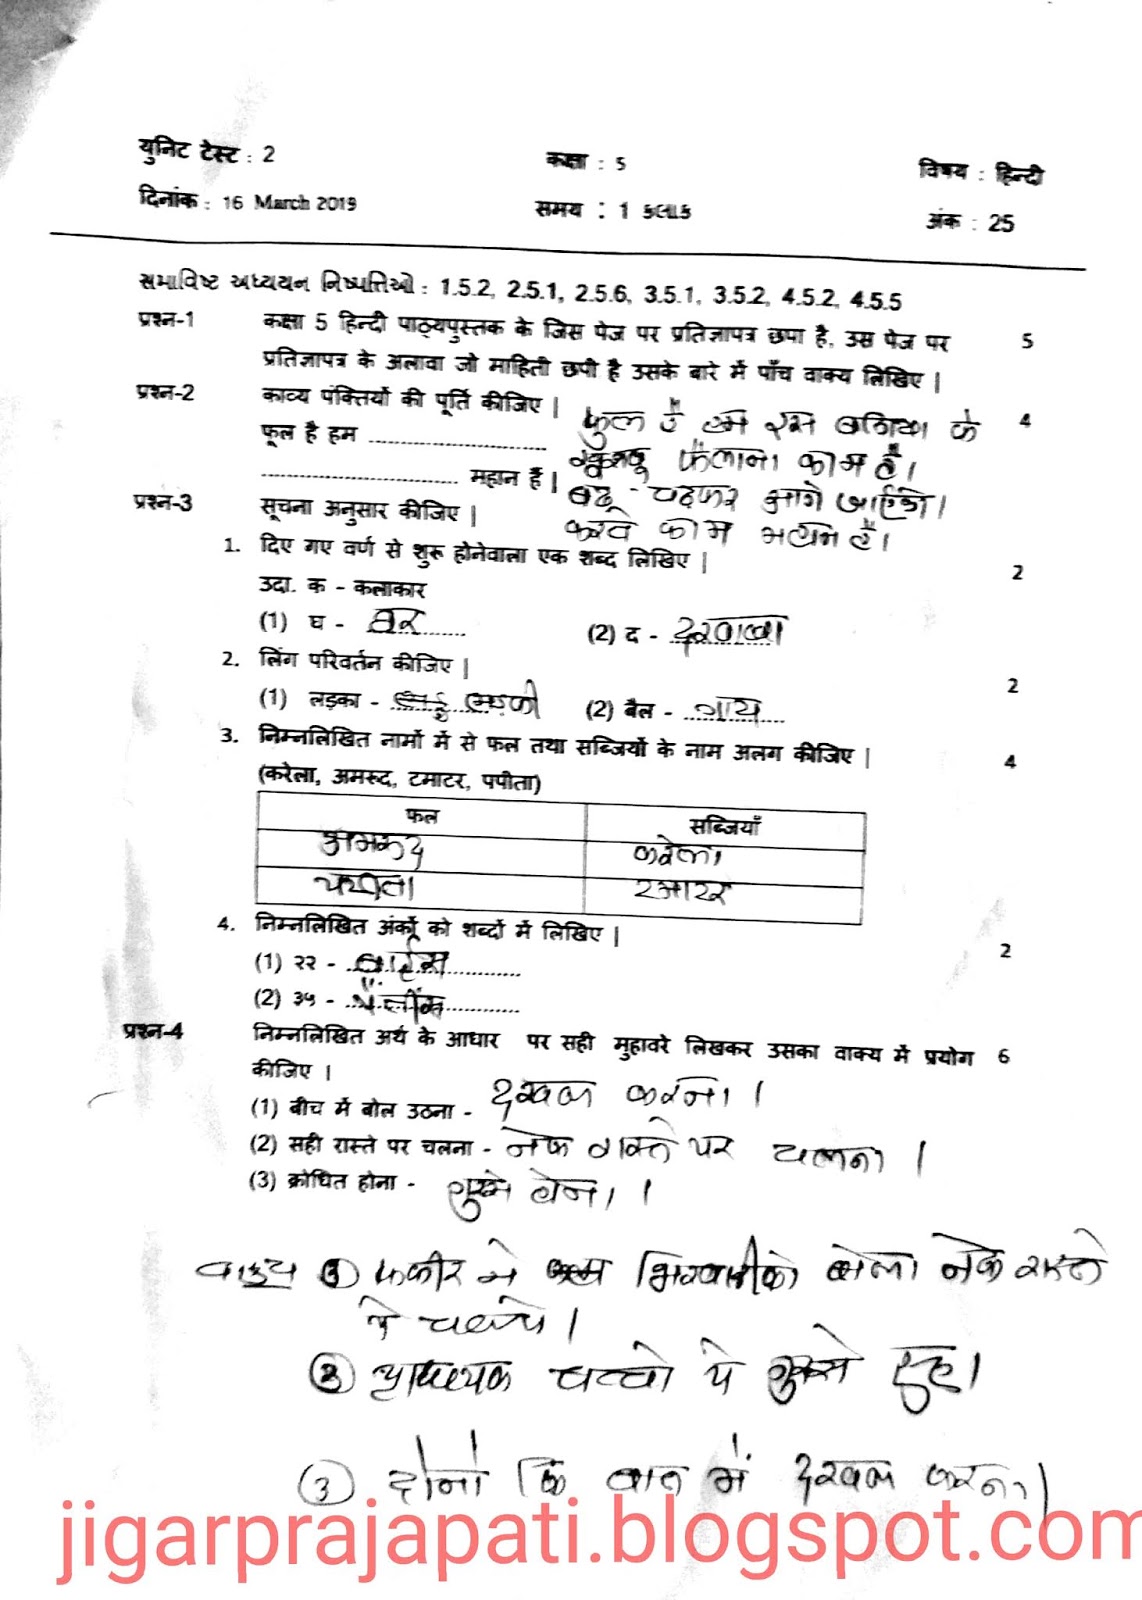 युनिट टेस्ट : 2 कक्षा : 5 विषय : हिन्दी
दिनांक : 16 March 2019 समय : 1 કલાક अंक : 25
સમાવિષ્ટ અધ્યયન નિષ્પત્તિઓ : 1.5.2, 2.5.1, 2.5.6, 3.5.1, 3.5.2, 4.5.2, 4.5.5
प्रश्न-1 कक्षा 5 हिन्दी पाठ्यपुस्तक के जिस पेज पर प्रतिज्ञापत्र छपा है, उस पेज पर 5
प्रतिज्ञापत्र के अलावा जो माहिती छपी है उसके बारे में पाँच वाक्य लिखिए |
प्रश्न-2 काव्य पंक्तियों की पूर्ति कीजिए | 4
फूल है हम ............................
फुल है हम इस बगिया के
खुश्बू फैलाना काम है।
............................... महान हैं |
बढ़ - चढ़कर आगे
करवे काम महान है।
प्रश्न-3 सूचना अनुसार कीजिए |
1. दिए गए वर्ण से शुरू होनेवाला एक शब्द लिखिए | 2
उदा. क - कलाकार
(1) घ - घर (2) द - दरवाजा
2. लिंग परिवर्तन कीजिए | 2
(1) लड़का - (2) बैल - गाय
3. निम्नलिखित नामों में से फल तथा सब्जियों के नाम अलग कीजिए | 4
(करेला, अमरूद, टमाटर, पपीता)
फल सब्जियाँ
अमरूद करेला
पपीता टमाटर
4. निम्नलिखित अंकों को शब्दों में लिखिए | 2
(1) २२ - बाईस
(2) ३५ - पैंतीस
प्रश्न-4 निम्नलिखित अर्थ के आधार पर सही मुहावरे लिखकर उसका वाक्य में प्रयोग 6
कीजिए |
(1) बीच में बोल उठना - दखल करना।
(2) सही रास्ते पर चलना - नेक रास्ते पर चलना।
(3) क्रोधित होना - गुस्से होना।
वाक्य फकीर ने भिखारी को बोला नेक रास्ते
पे चलने।
② अध्यापक बच्चो पे गुस्से हुए।
③ दोनो कि बात में दखल करना।
jigarprajapati.blogspot.com